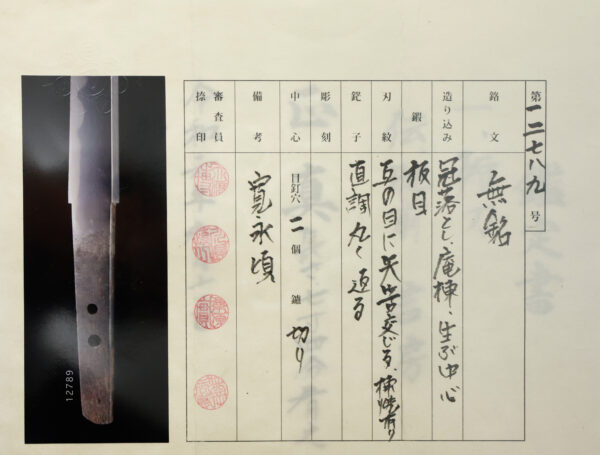 第一二七八九号
銘文 無銘
造り込み 冠落とし、庵棟、生ぶ中心
鍛 板目
刃紋 互の目に矢筈交じる、掃掛有り
鋩子 直調丸く返る
彫刻
中心 目釘穴 二個 鑢 切り
備考 寛永頃
審査員捺印
12789